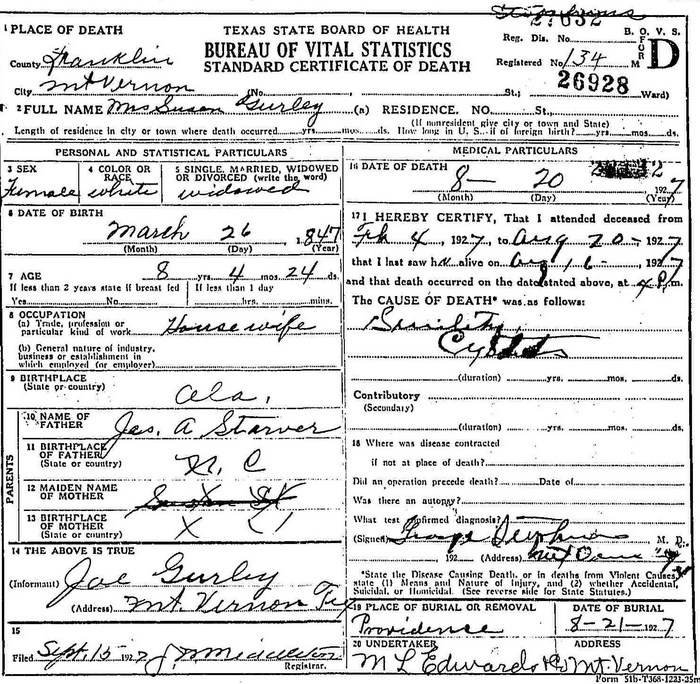 TEXAS STATE BOARD OF HEALTH
BUREAU OF VITAL STATISTICS
STANDARD CERTIFICATE OF DEATH
B. O. V. S.
FORM D
Reg. Dis. No.
Registered No. 134
26928
1 PLACE OF DEATH
County Franklin
City Mt Vernon (No. St., Ward)
2 FULL NAME Mrs Susan Gurley (a) RESIDENCE. NO. St.,
(If nonresident give city or town and State)
Length of residence in city or town where death occurred yrs. mos. ds. How long in U. S. if of foreign birth? yrs. mos. ds.
PERSONAL AND STATISTICAL PARTICULARS
3 SEX Female
4 COLOR OR RACE white
5 SINGLE, MARRIED, WIDOWED OR DIVORCED (write the word) widowed
6 DATE OF BIRTH
March 26 1847
(Month) (Day) (Year)
7 AGE 8 yrs. 4 mos. 24 ds.
If less than 2 years state if breast fed
Yes No
If less than 1 day
hrs. mins.
8 OCCUPATION
(a) Trade, profession or particular kind of work House wife
(b) General nature of industry,
business or establishment in
which employed (or employer)
9 BIRTHPLACE
(State or country) Ala.
PARENTS
10 NAME OF FATHER Jas. A Starver
11 BIRTHPLACE OF FATHER
(State or country) N. C
12 MAIDEN NAME OF MOTHER
13 BIRTHPLACE OF MOTHER
(State or country) X
14 THE ABOVE IS TRUE
(Informant) Joe Gurley
(Address) Mt. Vernon Tex
15
Filed Sept. 15 1927
Registrar.
MEDICAL PARTICULARS
16 DATE OF DEATH
8- 20 1927
(Month) (Day) (Year)
17 I HEREBY CERTIFY, That I attended deceased from
Feb 4 1927, to Aug 20- 1927
that I last saw h alive on Aug 16- 1927
and that death occurred on the date stated above, at 4 P.m.
The CAUSE OF DEATH* was as follows:
Senility
(duration) yrs. mos. ds.
Contributory
(Secondary)
(duration) yrs. mos. ds.
18 Where was disease contracted
if not at place of death?
Did an operation precede death? Date of
Was there an autopsy?
What test confirmed diagnosis?
(Signed) M. D.
192 (Address)
*State the Disease Causing Death, or in deaths from Violent Causes,
state (1) Means and Nature of Injury, and (2) whether Accidental,
Suicidal, or Homicidal. (See reverse side for State Statutes.)
19 PLACE OF BURIAL OR REMOVAL
Providence
DATE OF BURIAL
8-21-1927
20 UNDERTAKER
M L Edwards
ADDRESS
Mt. Vernon
Form 51b-T368-1223-35m